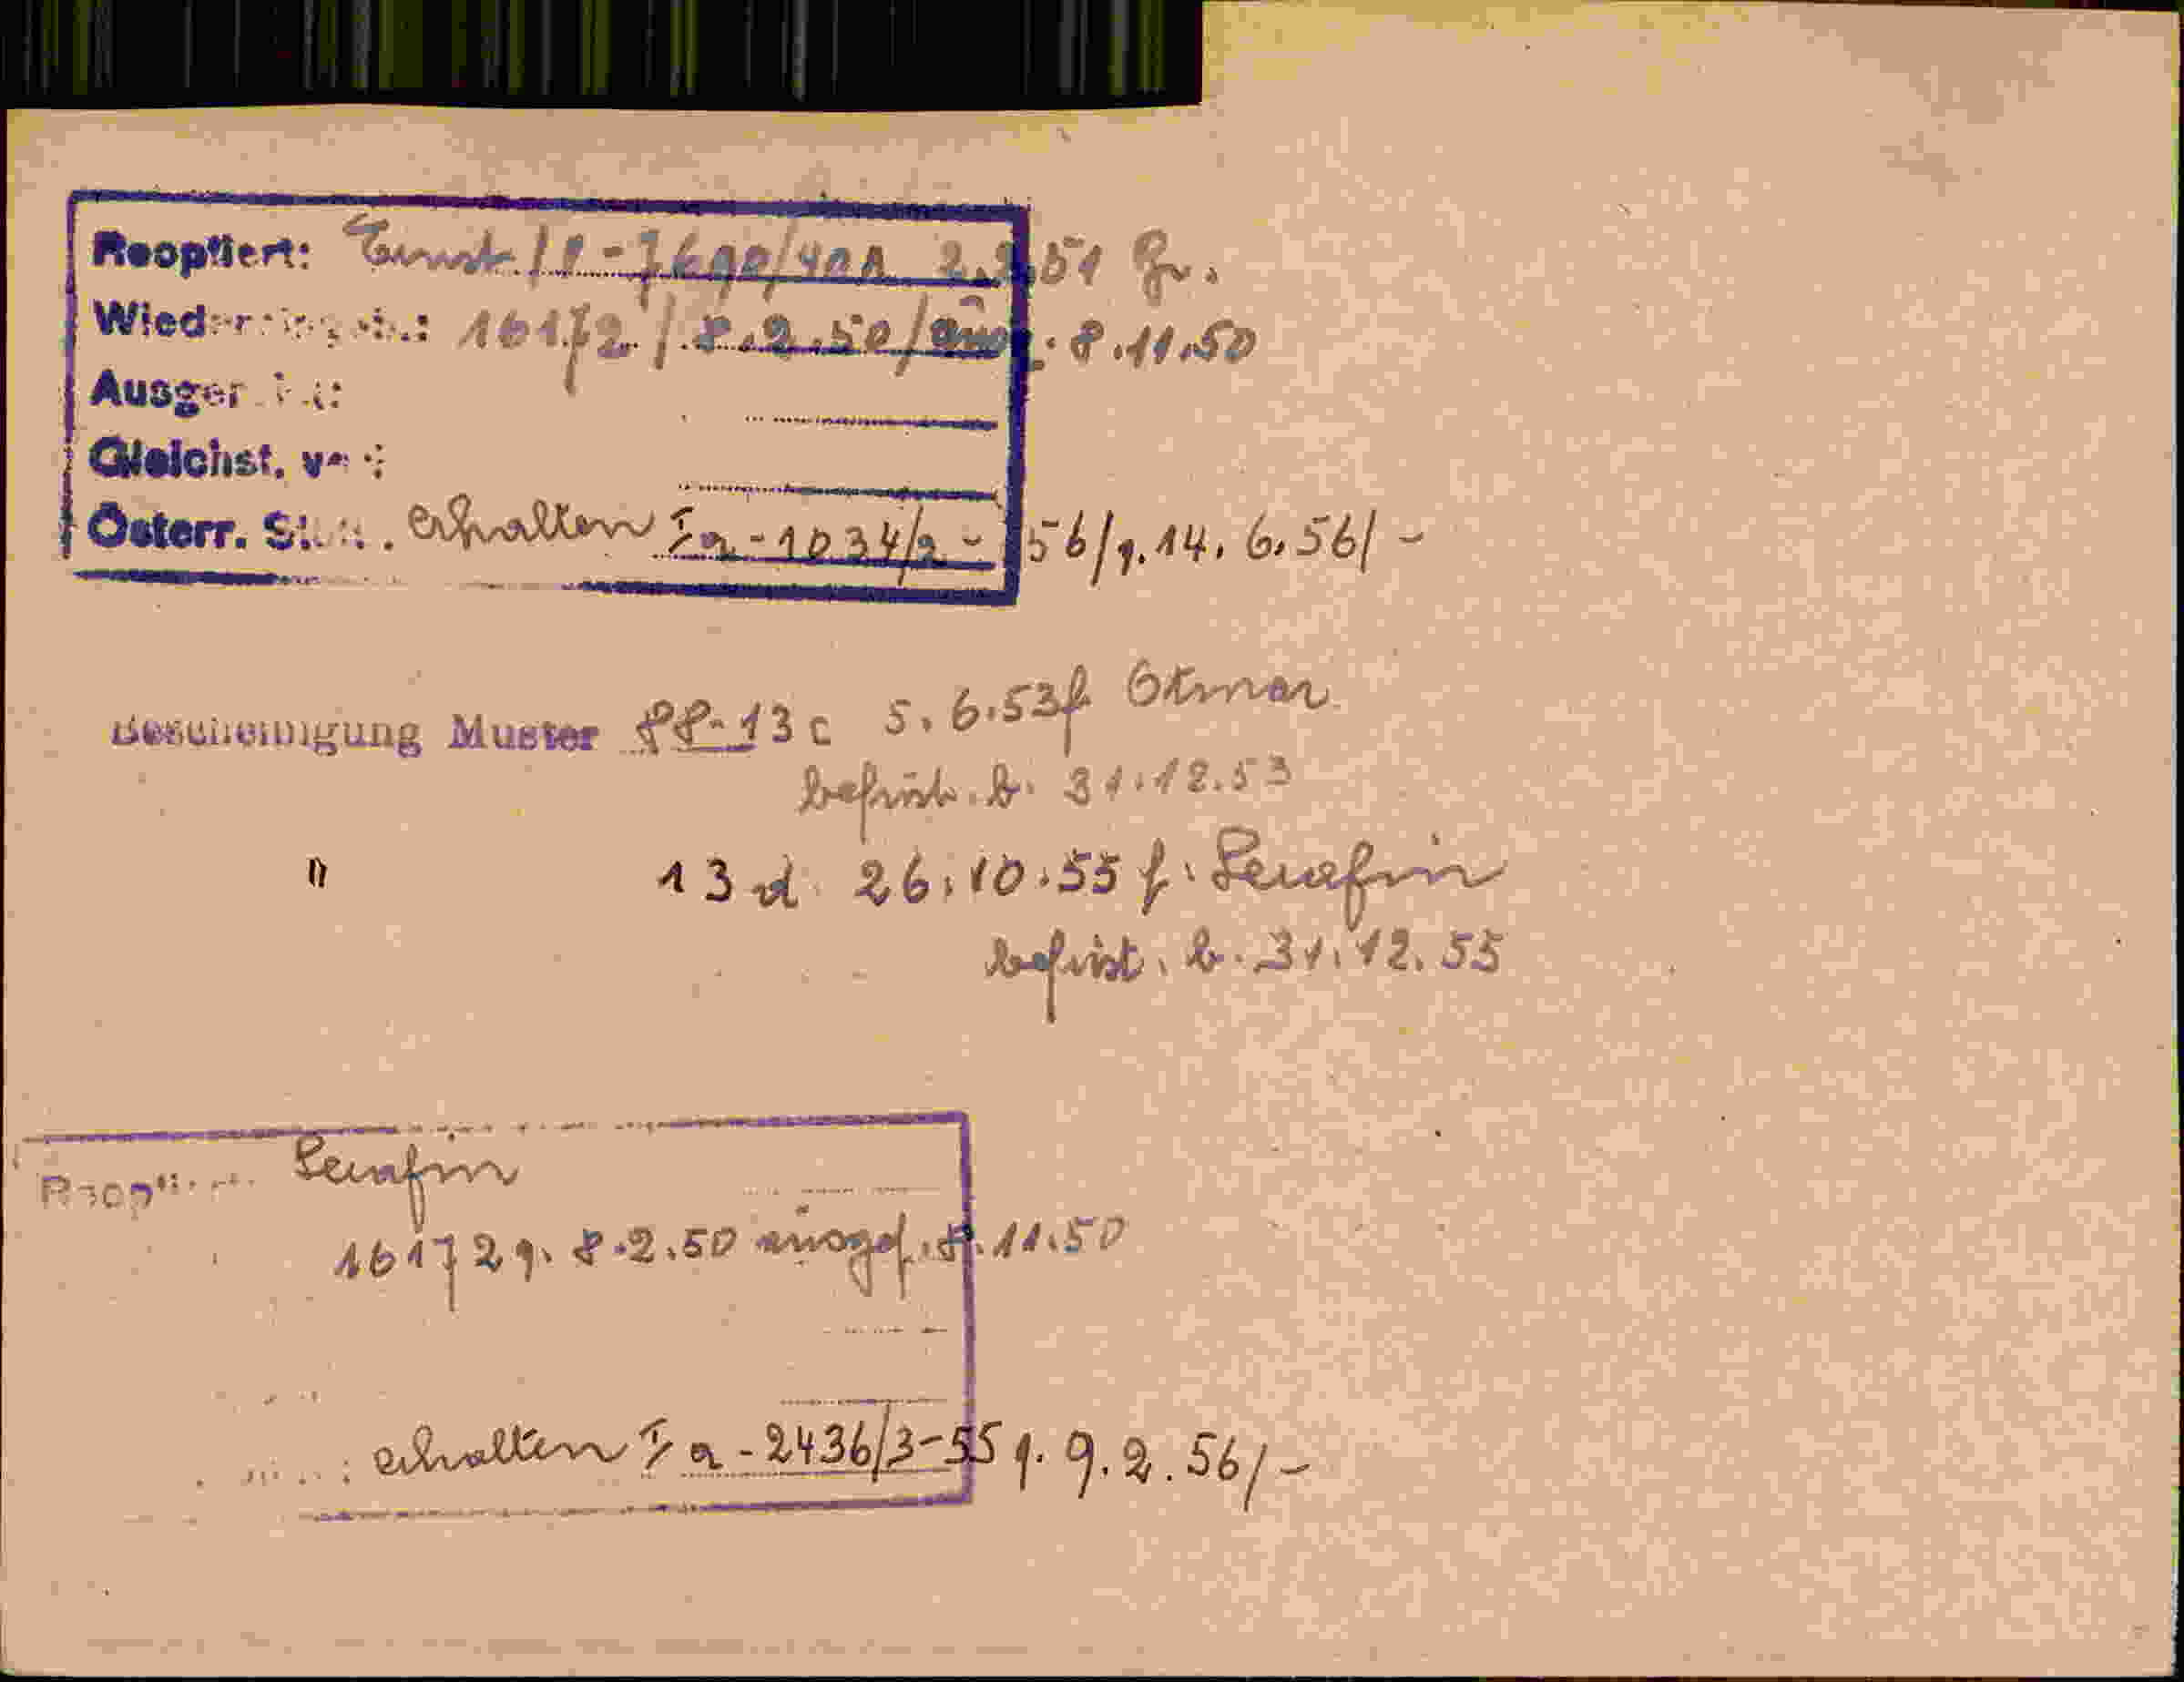 Reoptiert: Ernst / P - 7690/401 2.2.51 Gr.
16172 / 8.2.50 / ausg. 8.11.50
Gleichst.
Österr. St. erhalten Ia - 1034/2 - 56/g. 14. 6. 56/-
Bescheinigung Muster 88-13c 5. 6. 53 f Otmar
befrist. b. 31.12.53
" 13 d 26.10.55 f. Serafin
befrist. b. 31.12.55
Serafin
16172 g. 8.2.50 ausgef. 8.11.50
erhalten Ia - 2436/3-55 g. 9.2.56/-